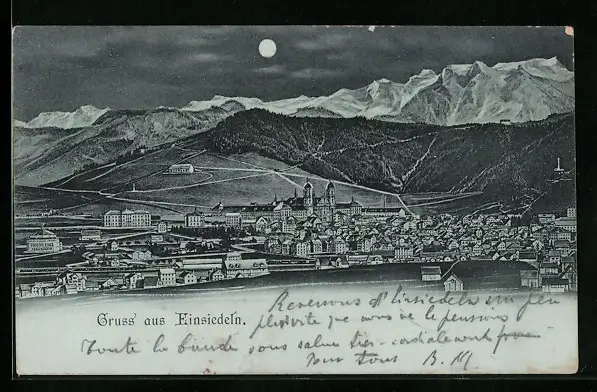 PANORAMA
Gruss aus Einsiedeln.
Revenons d'Einsiedeln un peu
plus vite que nous ne le pensions
Toute la bande vous salue très-cordialement
Pour tous B. M.